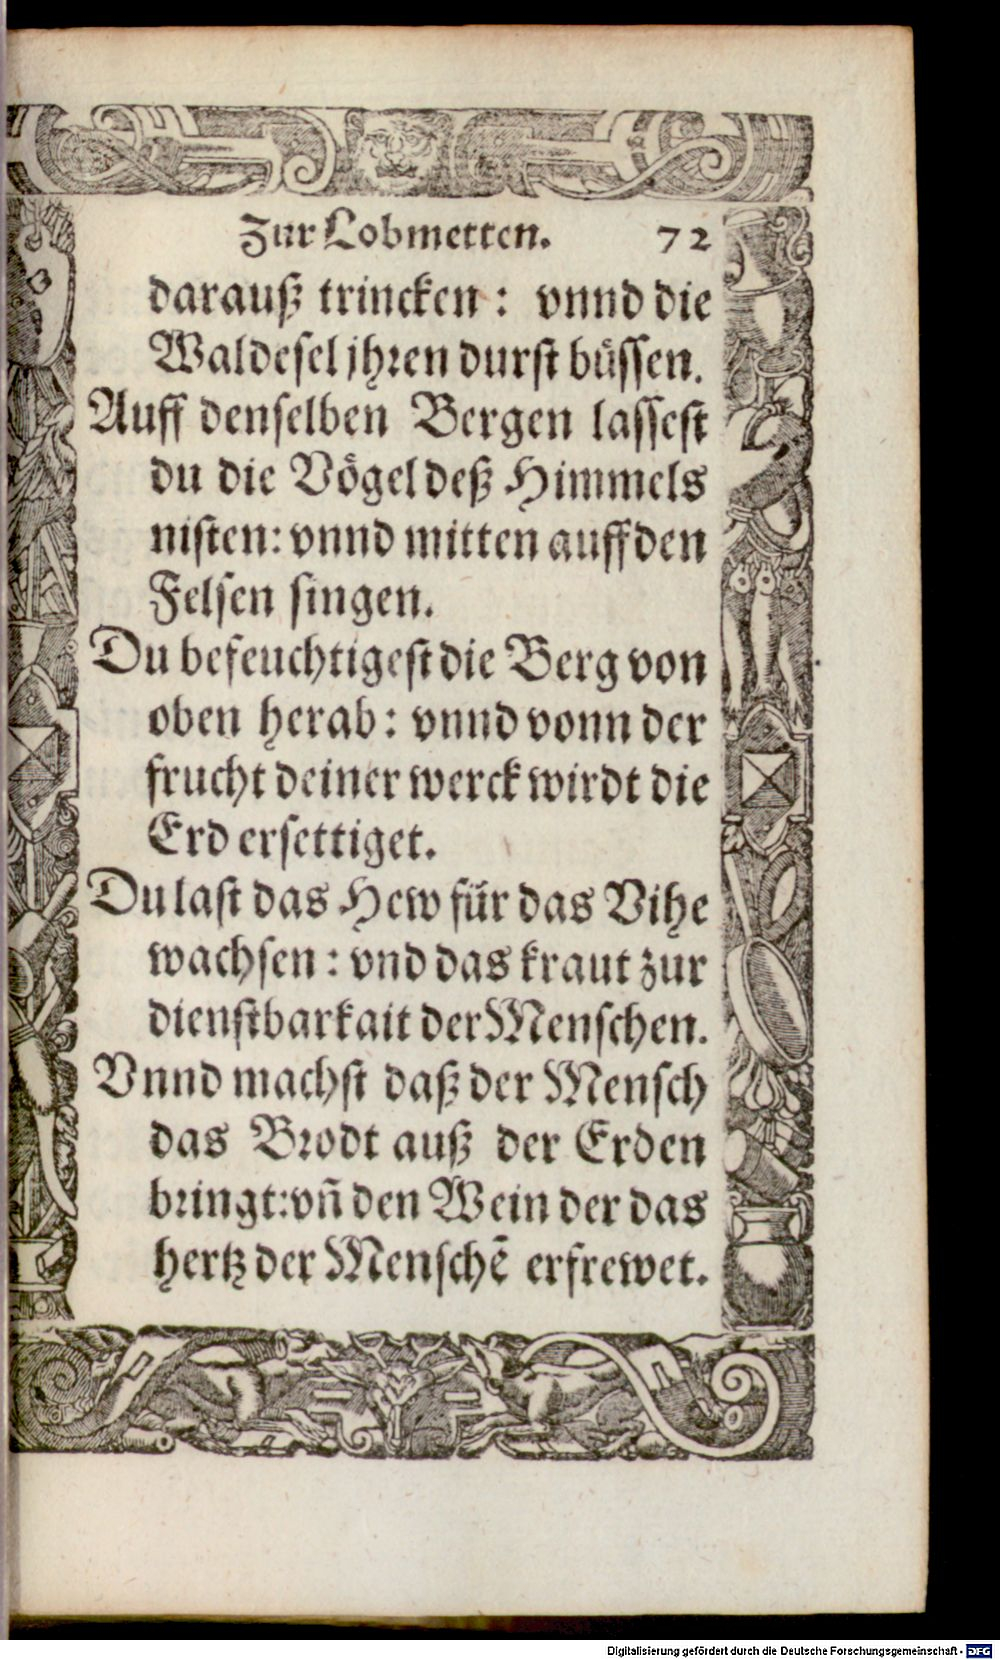 Zur Lobmetten. 72
darauß trincken : vnnd die
Waldesel jhren durst büssen.
Auff denselben Bergen lassest
du die Vögel deß Himmels
nisten: vnnd mitten auff den
Felsen singen.
Du befeuchtigest die Berg von
oben herab: vnnd vonn der
frucht deiner werck wirdt die
Erd ersettiget.
Du last das Hew für das Vihe
wachsen : vnd das kraut zur
dienstbarkait der Menschen.
Vnnd machst daß der Mensch
das Brodt auß der Erden
bringt: vñ den Wein der das
hertz der Menschẽ erfrewet.
Digitalisierung gefördert durch die Deutsche Forschungsgemeinschaft - DFG